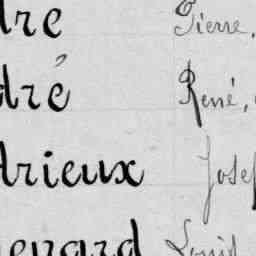 dre Pierre,
dré René,
drieux Josef
enard Louis